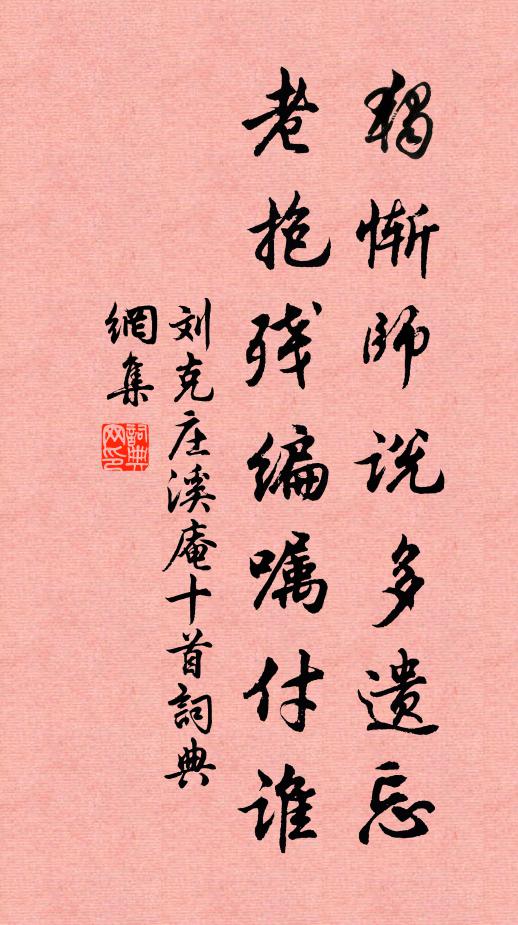 独惭师说多遗忘
老抱残编嘱付谁
刘克庄溪庵十首詞典
網集
詞典网印